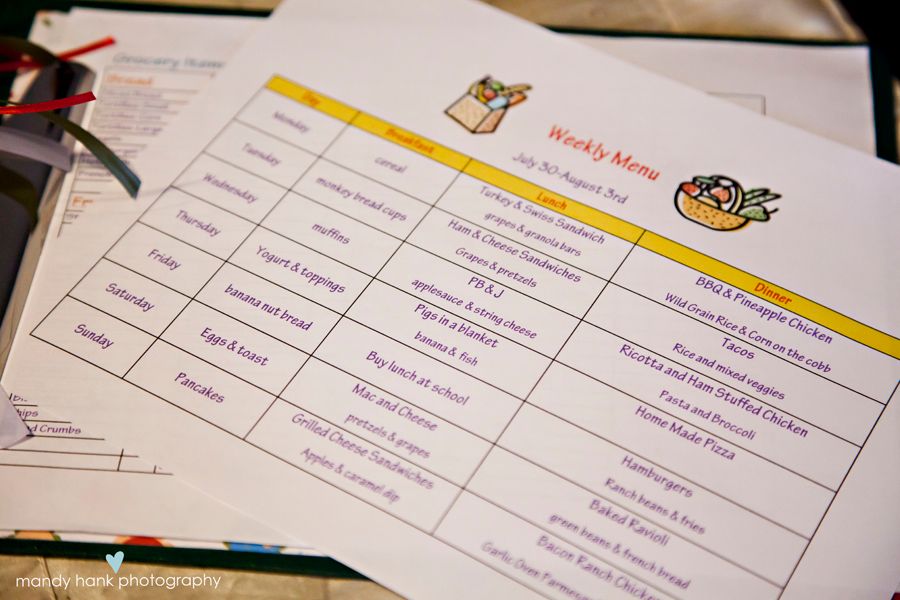 Weekly Menu
July 30-August 3rd
Day Breakfast Lunch Dinner
Monday
cereal
Turkey & Swiss Sandwich
grapes & granola bars
BBQ & Pineapple Chicken
Wild Grain Rice & Corn on the cobb
Tuesday
monkey bread cups
Ham & Cheese Sandwiches
Grapes & pretzels
Tacos
Rice and mixed veggies
Wednesday
muffins
PB & J
applesauce & string cheese
Ricotta and Ham Stuffed Chicken
Pasta and Broccoli
Thursday
Yogurt & toppings
Pigs in a blanket
banana & fish
Home Made Pizza
Friday
banana nut bread
Buy lunch at school
Hamburgers
Ranch beans & fries
Saturday
Eggs & toast
Mac and Cheese
pretzels & grapes
Baked Ravioli
green beans & french bread
Sunday
Pancakes
Grilled Cheese Sandwiches
Apples & caramel dip
Bacon Ranch Chicken
Garlic Oven Parmesan
Grocery Items
Bread
hips
d Crumbs
mandy hank photography